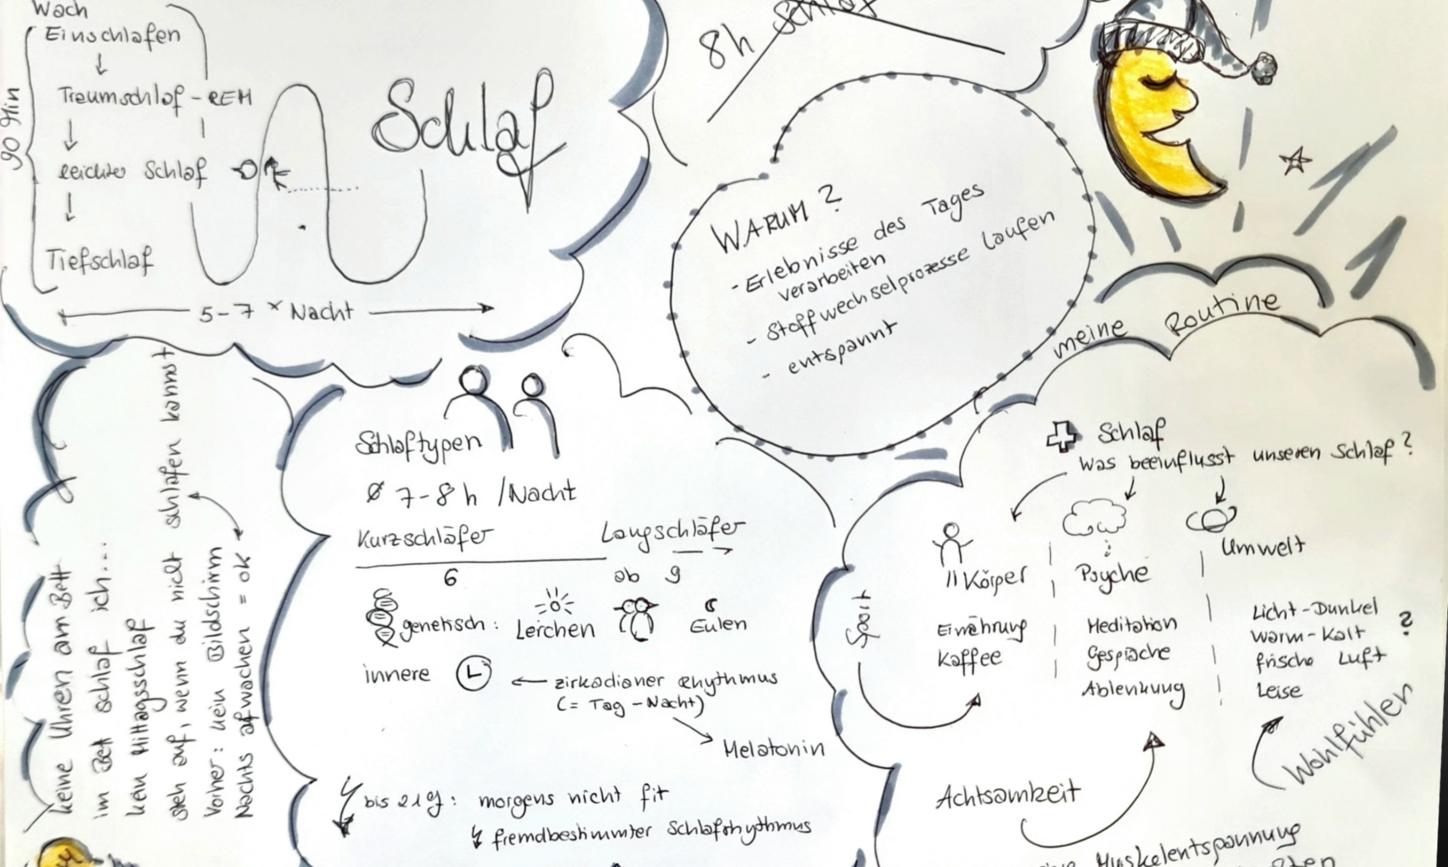 Wach
Einschlafen
Traumschlaf - REM
leichter Schlaf
Tiefschlaf
90 Min
5-7 x Nacht
Schlaf
8h Schlaf
WARUM?
- Erlebnisse des Tages
verarbeiten
- Stoffwechselprozesse laufen
- entspannt
meine Routine
keine Uhren am Bett
im Bett schlaf ich...
kein Mittagsschlaf
steh auf, wenn du nicht schlafen kannst
Vorher: kein Bildschirm
Nachts aufwachen = ok
Schlaftypen
Ø 7-8 h / Nacht
Kurzschläfer
Langschläfer
6
ab 9
genetisch:
Lerchen
Eulen
innere
← zirkadianer Rhythmus
(= Tag-Nacht)
Melatonin
bis 21 J: morgens nicht fit
fremdbestimmter Schlafrhythmus
Schlaf
Was beeinflusst unseren Schlaf?
Körper
Ernährung
Kaffee
Psyche
Meditation
Gespräche
Ablenkung
Umwelt
Licht-Dunkel
Warm-Kalt
frische Luft
Leise
?
Sport
Achtsamkeit
Wohlfühlen
Muskelentspannung